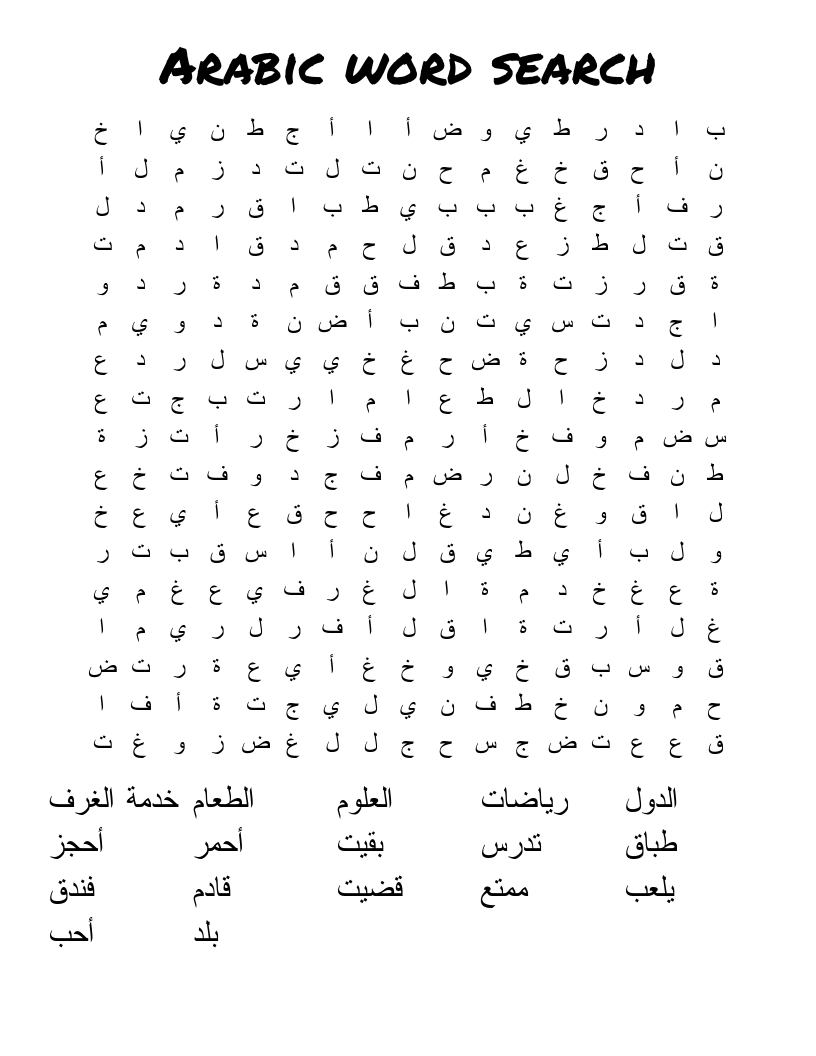 ARABIC WORD SEARCH
ب ا د ر ط ي و ض أ ا أ ج ط ن ي ا خ
ن أ ح ق خ غ م ح ن ت ل ت د ز م ل أ
ر ف أ ج غ ب ب ب ي ط ب ا ق ر م د ل
ق ت ل ط ز ع د ق ل ح م د ق ا د م ت
ة ق ر ز ت ة ب ط ف ق ق م د ة ر د و
ا ج د ت س ي ت ن ب أ ض ن ة د و ي م
د ل د ز ح ة ض ح غ خ ي ي س ل ر د ع
م ر د خ ا ل ط ع ا م ا ر ت ب ج ت ع
س ض م و ف خ أ ر م ف ز خ ر أ ت ز ة
ط ن ف خ ل ن ر ض م ف ج د و ف ت خ ع
ل ا ق و غ ن د غ ا ح ح ق ع أ ي ع خ
و ل ب أ ي ط ي ق ل ن أ ا س ق ب ت ر
ة ع غ خ د م ة ا ل غ ر ف ي ع غ م ي
غ ل أ ر ت ة ا ق ل أ ف ر ل ر ي م ا
ق و س ب ق خ ي و خ غ أ ي ع ة ر ت ض
ح م و ن خ ط ف ن ي ل ي ج ت ة أ ف ا
ق ع ع ت ض ج س ح ج ل ل غ ض ز و غ ت
الدول رياضات العلوم الطعام خدمة الغرف
طباق تدرس بقيت أحمر أحجز
يلعب ممتع قضيت قادم فندق
بلد أحب